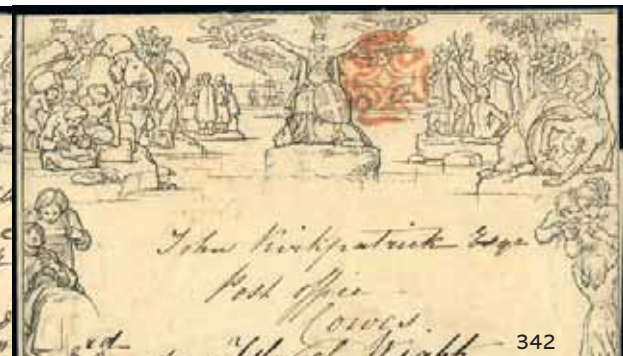 John Kirkpatrick Esqr
Post office
Cowes.
Isle of Wight
342